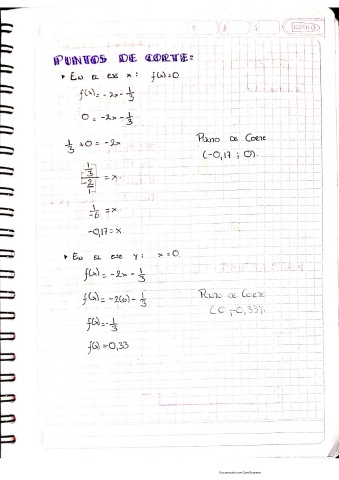 PUNTOS DE CORTE:
• EN EL EJE X: f(x)=0
f(x) = -2x - 1/3
0 = -2x - 1/3
1/3 + 0 = -2x
Punto de Corte
(-0,17 ; 0).
1/3 / -2/1 = x
1/-6 = x
-0,17 = x.
• EN EL EJE Y: x = 0.
f(x) = -2x - 1/3
f(x) = -2(0) - 1/3
Punto de Corte
(0 ; -0,33).
f(x) = - 1/3
f(x) = -0,33
Escaneado con CamScanner